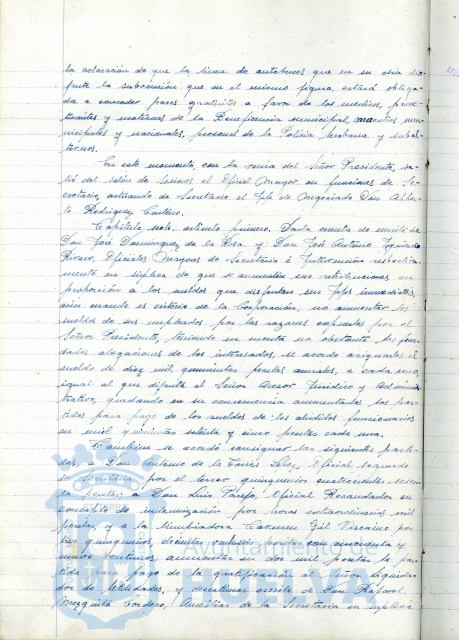 la aclaración de que la linea de autobuses que en su dia dis-
frute la subvención que en el mismo figura, estará obliga-
da a conceder pases gratuitos a favor de los medicos, prac-
ticantes y matronas de la Beneficencia municipal, maestros mu-
nicipales y nacionales, personal de la Policia Urbana y subal-
ternos.
En este momento, con la venia del Señor Presidente, sa-
lió del salón de Sesiones el Oficial Mayor en funciones de Se-
cretario, actuando de Secretario el Jefe de Negociado Don Alber-
to Rodriguez
Capitulo sexto, articulo primero. Dada cuenta de escrito de
Don José Dominguez de la y Don José Antonio Izquierdo
Rivero, Oficiales Mayores de Secretaria e Intervención respectiva-
mente en súplica de que se aumenten sus retribuciones en
proporción a los sueldos que disfrutan sus Jefes inmediatos,
aún cuando es criterio de la Corporación, no aumentar los
sueldos de sus empleados por las razones expuestas por el
Señor Presidente, teniendo en cuenta no obstante las fun-
dadas alegaciones de los interesados, se acordó asignarles el
sueldo de diez mil quinientas pesetas anuales, a cada uno,
igual al que disfruta el Señor Asesor Juridico y Adminis-
trativo, quedando en su consecuencia aumentadas las par-
tidas para pago de los sueldos de los aludidos funcionarios
en mil quinientas setenta y cinco pesetas cada una.
Tambien se acordó consignar las siguientes parti-
das, a Don Antonio de la Torre López, Oficial segundo
de Secretaria, por el tercer quinquenio cuatrocientas
pesetas; a Don Luis Oficial Recaudador en
concepto de indemnización por horas extraordinarias mil
pesetas, y a la limpiadora Carmen Gil Vizcaino por
tres quinquenios, pesetas con cincuenta y
centimos, aumentar en dos mil pesetas la par-
tida para pago de la gratificación de Liquida-
dor de Utilidades, y escrito de Don Rafael
Mezquita Cordero, Auxiliar de la Secretaria en suplica
Ayuntamiento de
HUELVA